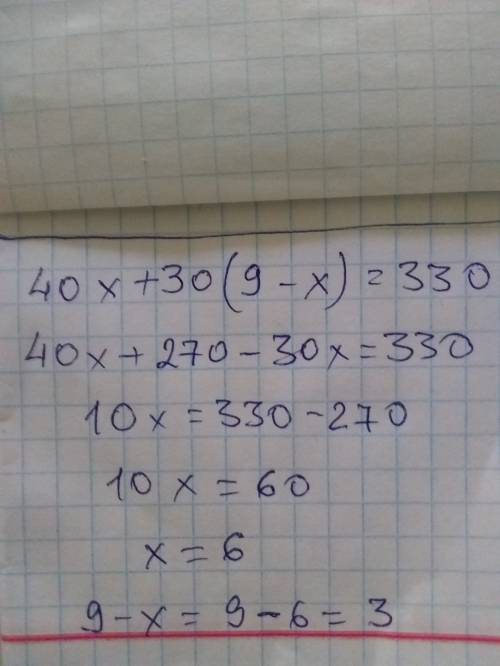 40x+30(9-x)=330
40x+270-30x=330
10x=330-270
10x=60
x=6
9-x=9-6=3